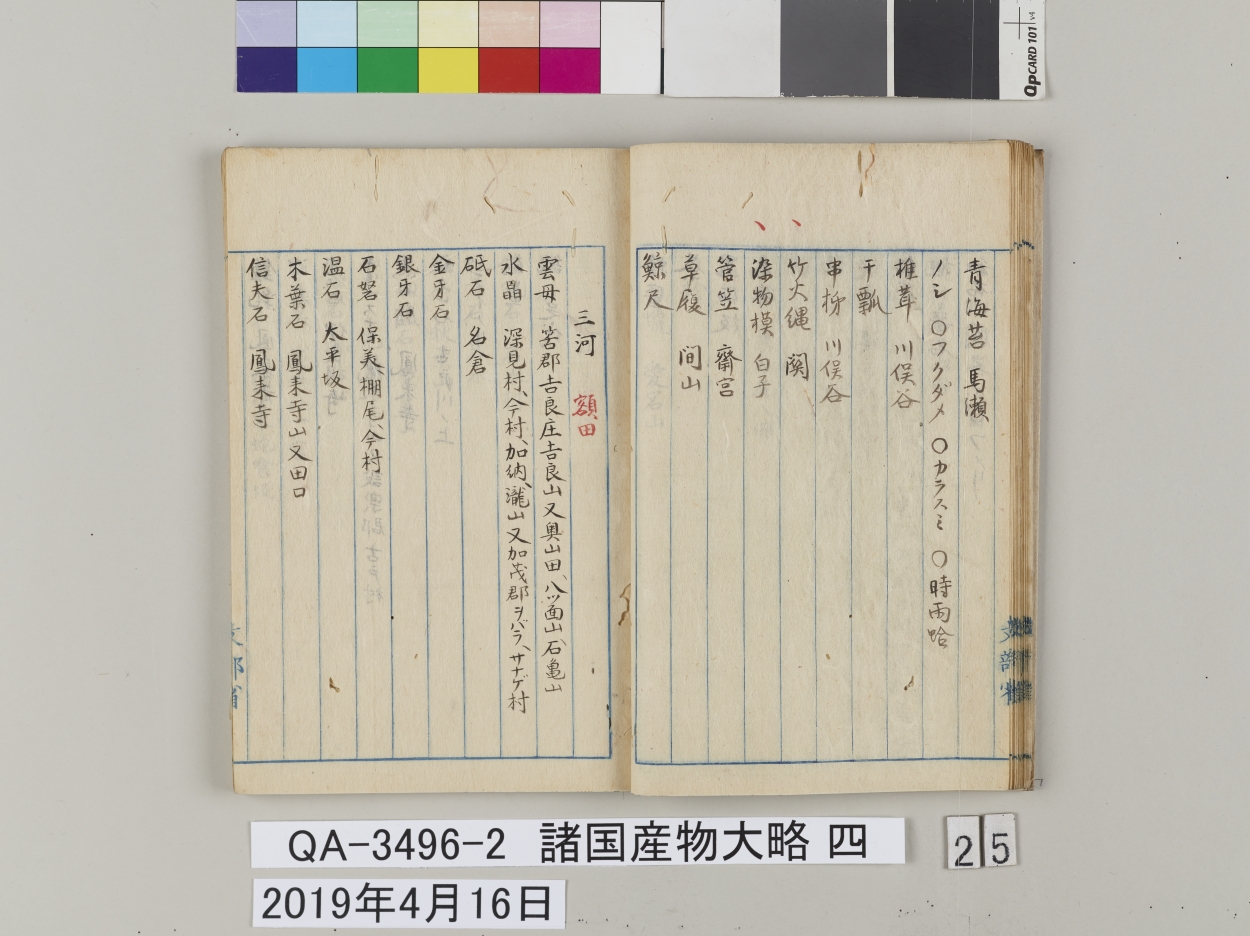 QpCARD 101 v4
青海苔 馬瀬
ノシ 〇フクダメ 〇カラスミ 〇時雨蛤
椎茸 川俣谷
干瓢
串柹 川俣谷
竹火縄 関
染物模 白子
菅笠 齋宮
草履 間山
鯨尺
三河 額田
雲母 筥郡吉良庄吉良山又奥山田、八ツ面山、石亀山
水晶 深見村、今村、加納、瀧山又加茂郡シバラ、サナゲ村
砥石 名倉
金牙石
銀牙石
石弩 保美、棚尾、今村
温石 太平坂
木葉石 鳳来寺山又田口
信夫石 鳳来寺
文部省
QA-3496-2 諸国産物大略 四
25
2019年4月16日